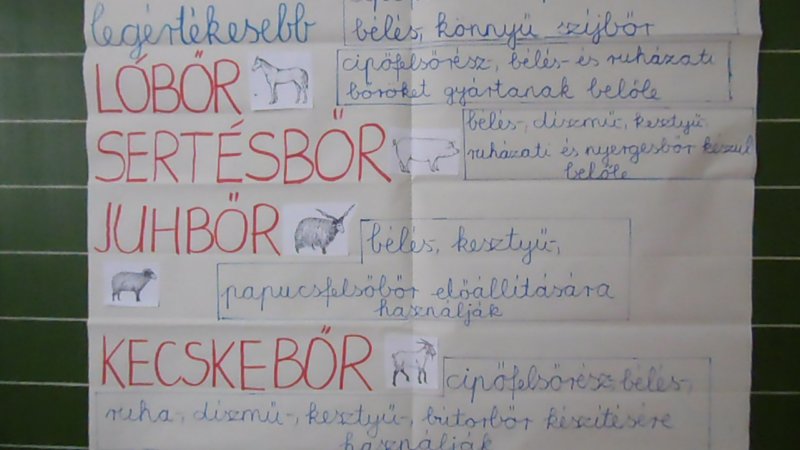 legértékesebb
bélés, könnyű szíjbőr
LÓBŐR
cipőfelsőrész-, bélés- és ruházati
bőröket gyártanak belőle
SERTÉSBŐR
bélés-, díszmű-, kesztyű-
ruházati és nyergesbőr készül
belőle
JUHBŐR
bélés, kesztyű-,
papucsfelsőbőr előállítására
használják
KECSKEBŐR
cipőfelsőrész, bélés-,
ruha-, díszmű-, kesztyű-, bútorbőr készítésére
használják